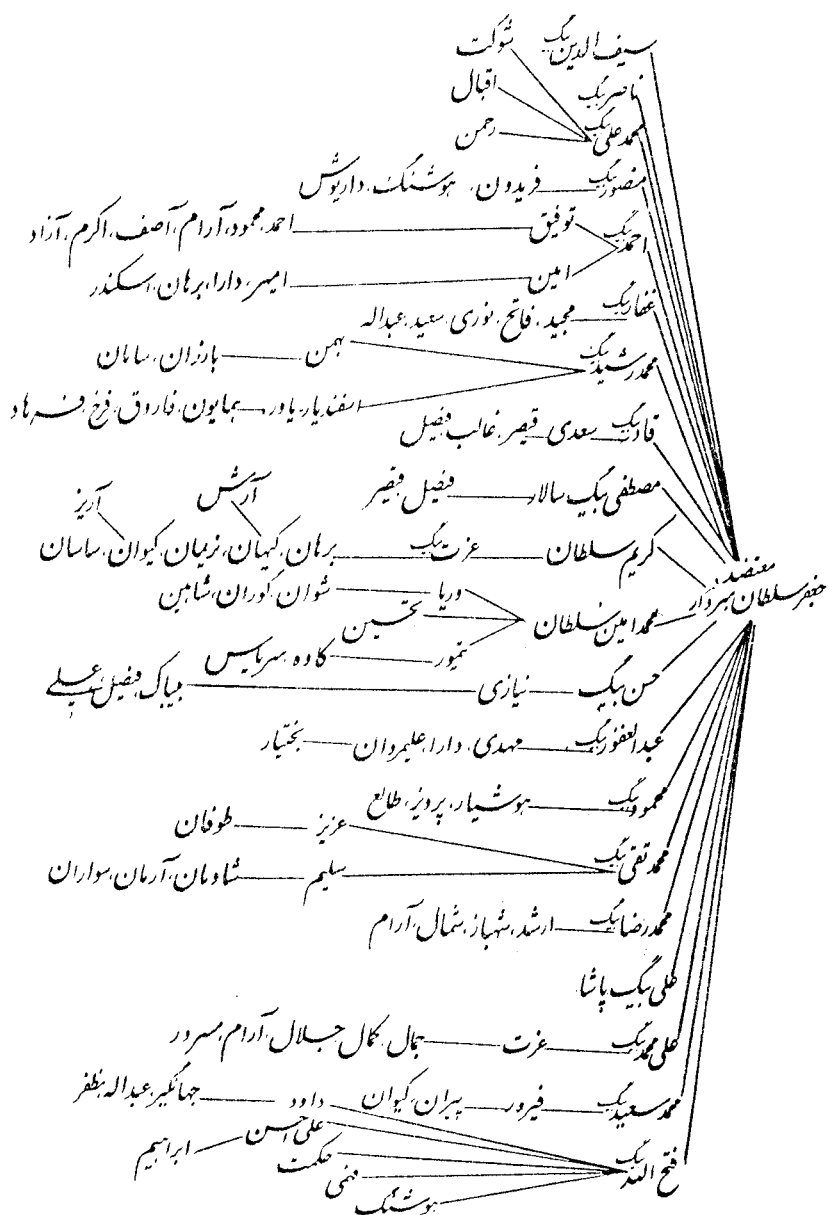 سیف الدین بیگ شوکت
ناصر بیگ اقبال
محمد علی بیگ رحمن
منصور بیگ فریدون، هوشنگ، داریوش
توفیق احمد، محمود، آرام، آصف، اکرم، آزاد
احمد بیگ
امین امیر، دارا، برهان، اسکندر
غفار بیگ مجید، فاتح، نوری، سعید، عبداله
محمد رشید بیگ بهمن بارزان، سامان
اسفندیار، یاور همایون، فاروق، فرخ، فرهاد
قادر بیگ سعدی، قیصر، غالب، فیصل
مصطفی بیگ سالار فیصل، قیصر
آرش آریز
کریم سلطان عزت بیگ برهان، کیهان، نریمان، کیوان، ساسان
معتضد
جعفر سلطان سردار
وریا شوان، گوران، شاهین
محمد امین سلطان تحسین
تیمور کاوه، سریاس
حسن بیگ نیازی بیباک، فیصل، علی
عبدالغفور بیگ مهدی، دارا، علیمردان بختیار
محمود بیگ هوشیار، پرویز، طالع
محمد تقی بیگ عزیز طوفان
سلیم شادمان، آرمان، سواران
محمد رضا بیگ ارشد، شهباز، شمال، آرام
علی بیگ پاشا
علی محمد بیگ عزت جمال، کمال، جلال، آرام، مسرور
محمد سعید بیگ فیروز پیران، کیوان
داود جهانگیر، عبداله، مظفر
فتح الله بیگ علی احسن ابراهیم
حکمت
فهمی
هوشنگ